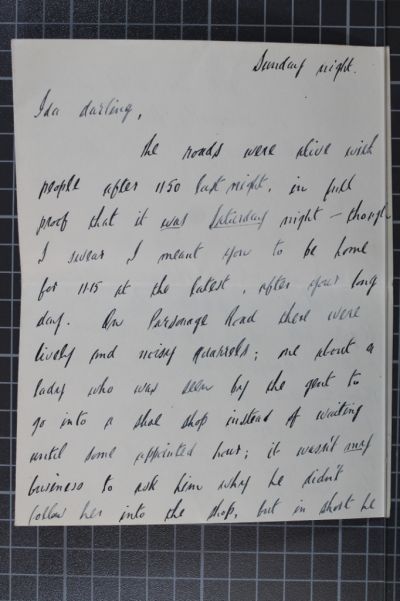 Sunday night.
Ida darling,
the roads were alive with
people after 11.50 last night, in full
proof that it was Saturday night – though
I swear I meant you to be home
for 11.15 at the latest, after your long
day. On Parsonage Road there were
lively and noisy quarrels; one about a
lady who was seen by the gent to
go into a shoe shop instead of waiting
until some appointed hour; it wasn't my
business to ask him why he didn't
follow her into the shop, but in short he